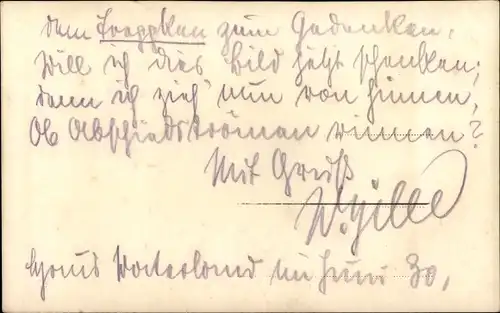 dem Froggken zum Gedenken,
Will ich dies Bild jetzt schenken;
denn ich zieh' nun von hinnen,
Ob Abschiedströnen rinnen?
Mit Gruß
W. Gille
Vaterland im Juni 30,